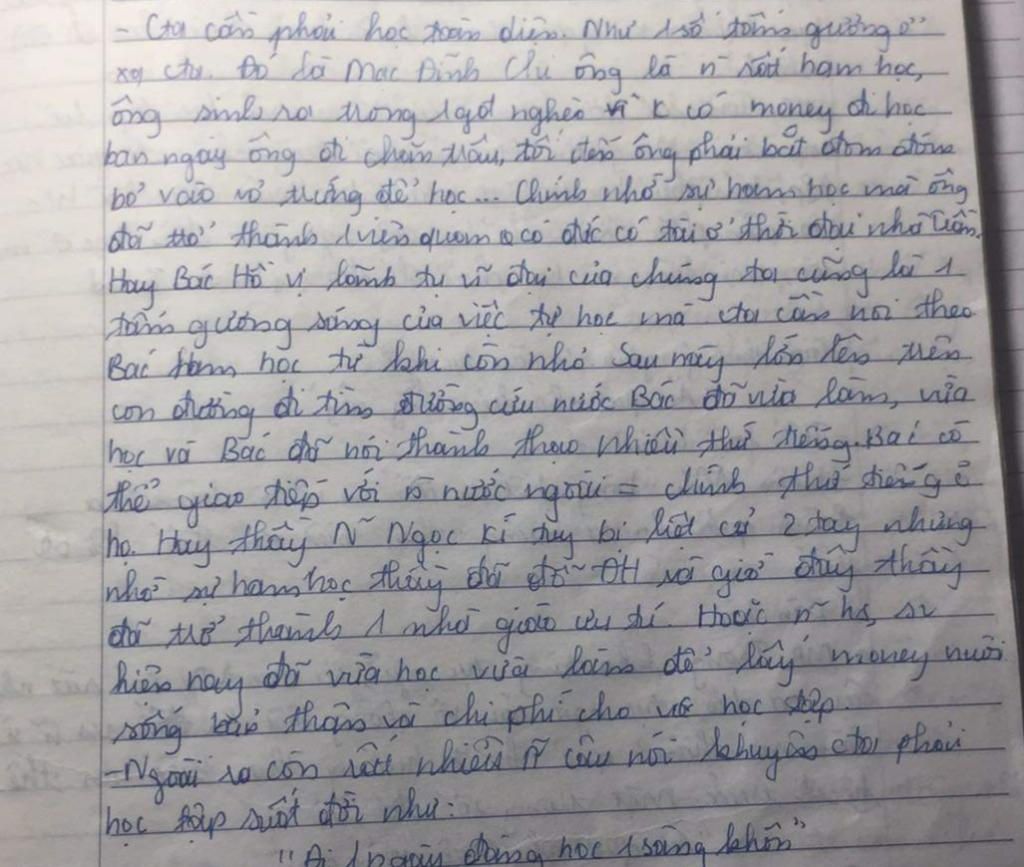 - Cta cần phải học toàn diện. Như 1 số tấm gương ở
xq cta. Đó là Mạc Đĩnh Chi ông là n rất ham học,
ông sinh ra trong 1 gđ nghèo vì k có money đi học
ban ngày ông đi chăn trâu, tối đến ông phải bắt đom đóm
bỏ vào vỏ trứng để học... Chính nhờ sự ham học mà ông
đã trở thành 1 viên quan có đức có tài ở thời đại nhà Trần.
Hay Bác Hồ vị lãnh tụ vĩ đại của chúng ta cũng là 1
tấm gương sáng của việc tự học mà cta cần noi theo
Bác ham học từ khi còn nhỏ sau này lớn lên trên
con đường đi tìm đường cứu nước Bác đã vừa làm, vừa
học và Bác đã nói thành thạo nhiều thứ tiếng. Bác có
thể giao tiếp với n nước ngoài = chính thứ tiếng ở
họ. Hay thầy N~ Ngọc Kí tuy bị liệt cả 2 tay nhưng
nhờ sự ham học thầy đã đỗ ĐH và giờ đây thầy
đã trở thành 1 nhà giáo ưu tú. Hoặc n~ hs, sv
hiện nay đã vừa học vừa làm để lấy money nuôi
sống bản thân và chi phí cho việc học tập
- Ngoài ra còn rất nhiều n~ câu nói khuyên cta phải
học tập suốt đời như:
"Đi 1 ngày đàng học 1 sàng khôn"